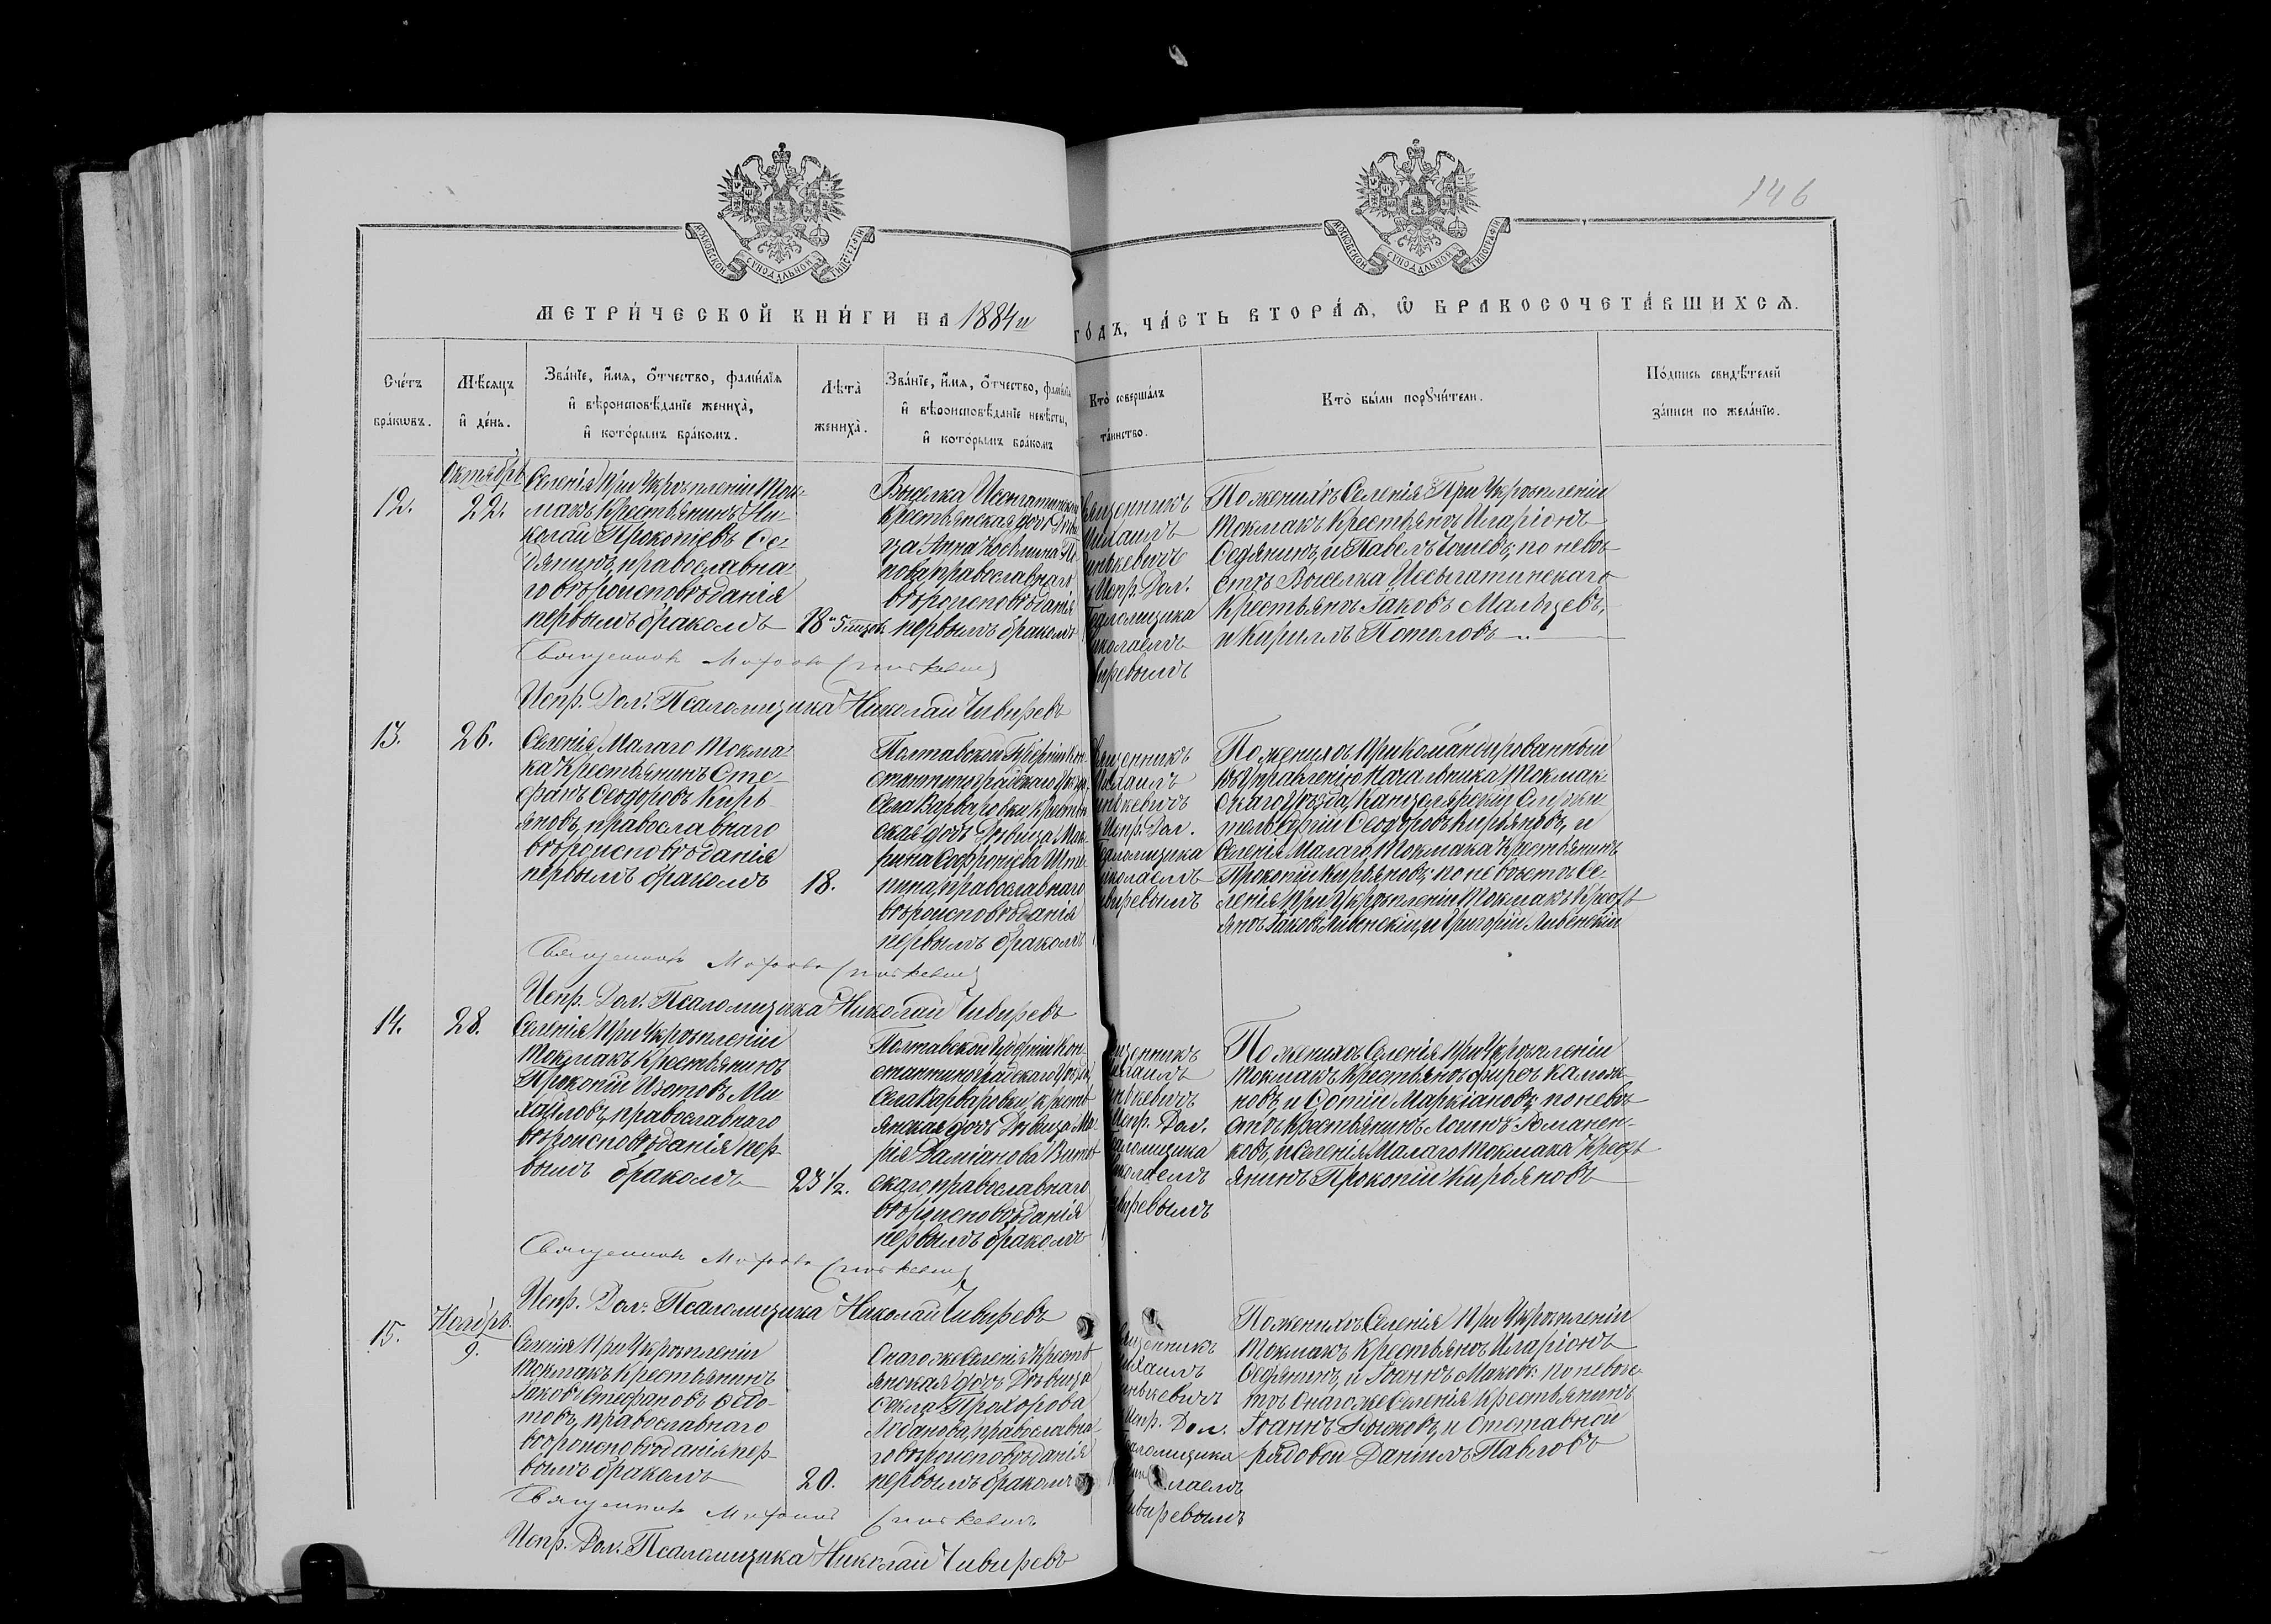 146
МОСКОВСКОЙ СУНОДАЛЬНОЙ ТИПОГРАФІИ
МОСКОВСКОЙ СУНОДАЛЬНОЙ ТИПОГРАФІИ
МЕТРИ́ЧЕСКОЙ КНИ́ГИ НА 1884й
ГО́ДЪ, ЧА́СТЬ ВТОРА́Ѧ, Ѽ БРАКОСОЧЕТА́ВШИХСѦ.
Сче́тъ
бра́кѡвъ.
Мѣ́сѧцъ
и҆ де́нь.
Зва́нїе, и҆́мѧ, ѻ҆́тчество, фами́лїѧ
и҆ вѣроисповѣ́данїе жениха̀,
и҆ кото́рымъ бра́комъ.
Лѣта̀
жениха̀.
Зва́нїе, и҆́мѧ, ѻ҆́тчество, фами́лїѧ
и҆ вѣроисповѣ́данїе невѣ́сты,
и҆ кото́рымъ бра́комъ
Кто̀ соверша́лъ
та́инство.
Кто̀ бы́ли порꙋчи́тели.
По́дпись свидѣ́телей
за́писи по жела́нїю.
12.
Октябрь
22.
Селенія При Укрѣпленіи Ток-
макъ Крестьянинъ Ни-
колай Прокопіевъ Се-
дянинъ, православна-
го вѣроисповѣданія
первымъ бракомъ
18 и 5 мѣсяц.
Выселка
Крестьянская дочь
ца Анна
пова православнаго
вѣроисповѣданія
первымъ бракомъ
Священникъ
Михаилъ
и Испр. Дол.
Псаломщика
Николаемъ
Чивиревымъ
По женихѣ Селенія При Укрѣпленіи
Токмакъ Крестьяне Иларіонъ
Седянинъ, и Павелъ по невѣ-
стѣ Выселка Иссыгатинскаго
Крестьяне Іаковъ Мальцевъ,
и Кириллъ Потоловъ
Священникъ
Испр. Дол. Псаломщика Николай Чивиревъ
13.
26.
Селенія Малаго Токма-
ка Крестьянинъ Сте-
фанъ Ѳеодоровъ Кирь-
яновъ, православнаго
вѣроисповѣданія
первымъ бракомъ
18.
Полтавской Губерніи Кон-
стантиноградскаго Уѣзда,
Села Варваровки Крестьян-
ская дочь Дѣвица Мак-
рина Софроніева
пина, православнаго
вѣроисповѣданія
первымъ бракомъ
Священникъ
Михаилъ
и Испр. Дол.
Псаломщика
Николаемъ
Чивиревымъ
По женихѣ Прикомандированный
къ Управленію Начальника Токмак-
скаго Уѣзда, Канцелярскій Служи-
тель Георгій Ѳеодоровъ Кирьяновъ, и
Селенія Малаго Токмака Крестьянинъ
Прокопій Кирьяновъ; по невѣстѣ Се-
ленія При Укрѣпленіи Токмакъ Крест-
яне Іаковъ Ливенскій, и Григорій Ливенскій
Священникъ
Испр. Дол. Псаломщика Николай Чивиревъ
14.
28.
Селенія При Укрѣпленіи
Токмакъ Крестьянинъ
Прокопій Изотовъ Ми-
хайловъ, православнаго
вѣроисповѣданія пер-
вымъ бракомъ
23 1/2.
Полтавской Губерніи Кон-
стантиноградскаго Уѣзда,
Села Варваровки, кресть-
янская дочь Дѣвица Ма-
рія Даміанова
скаго, православнаго
вѣроисповѣданія
первымъ бракомъ
Священникъ
Михаилъ
Испр. Дол.
Псаломщика
Николаемъ
Чивиревымъ
По женихѣ Селенія При Укрѣпленіи
Токмакъ Крестьяне
и Маркіановъ; по невѣ-
стѣ Крестьянинъ Логинъ Романен-
ковъ, и Селенія Малаго Токмака Крест-
янинъ Прокопій Кирьяновъ
Священникъ
Испр. Дол. Псаломщика Николай Чивиревъ
15.
Ноябрь.
9.
Селенія При Укрѣпленіи
Токмакъ Крестьянинъ
Іаковъ Стефановъ Ѳедо-
товъ, православнаго
вѣроисповѣданія пер-
вымъ бракомъ
20.
Онаго же Селенія Кресть-
янская дочь Дѣвица
Ѳекла Прохорова
православна-
го вѣроисповѣданія
первымъ бракомъ
Священникъ
Михаилъ
Испр. Дол.
Псаломщика
Николаемъ
Чивиревымъ
По женихѣ Селенія При Укрѣпленіи
Токмакъ Крестьяне Иларіонъ
Седянинъ, и Іоаннъ Маковъ: по невѣс-
тѣ Онаго же Селенія Крестьянинъ
Іоаннъ Рыжковъ, и Отставной
рядовой Даніилъ Павловъ
Священникъ
Испр. Дол. Псаломщика Николай Чивиревъ